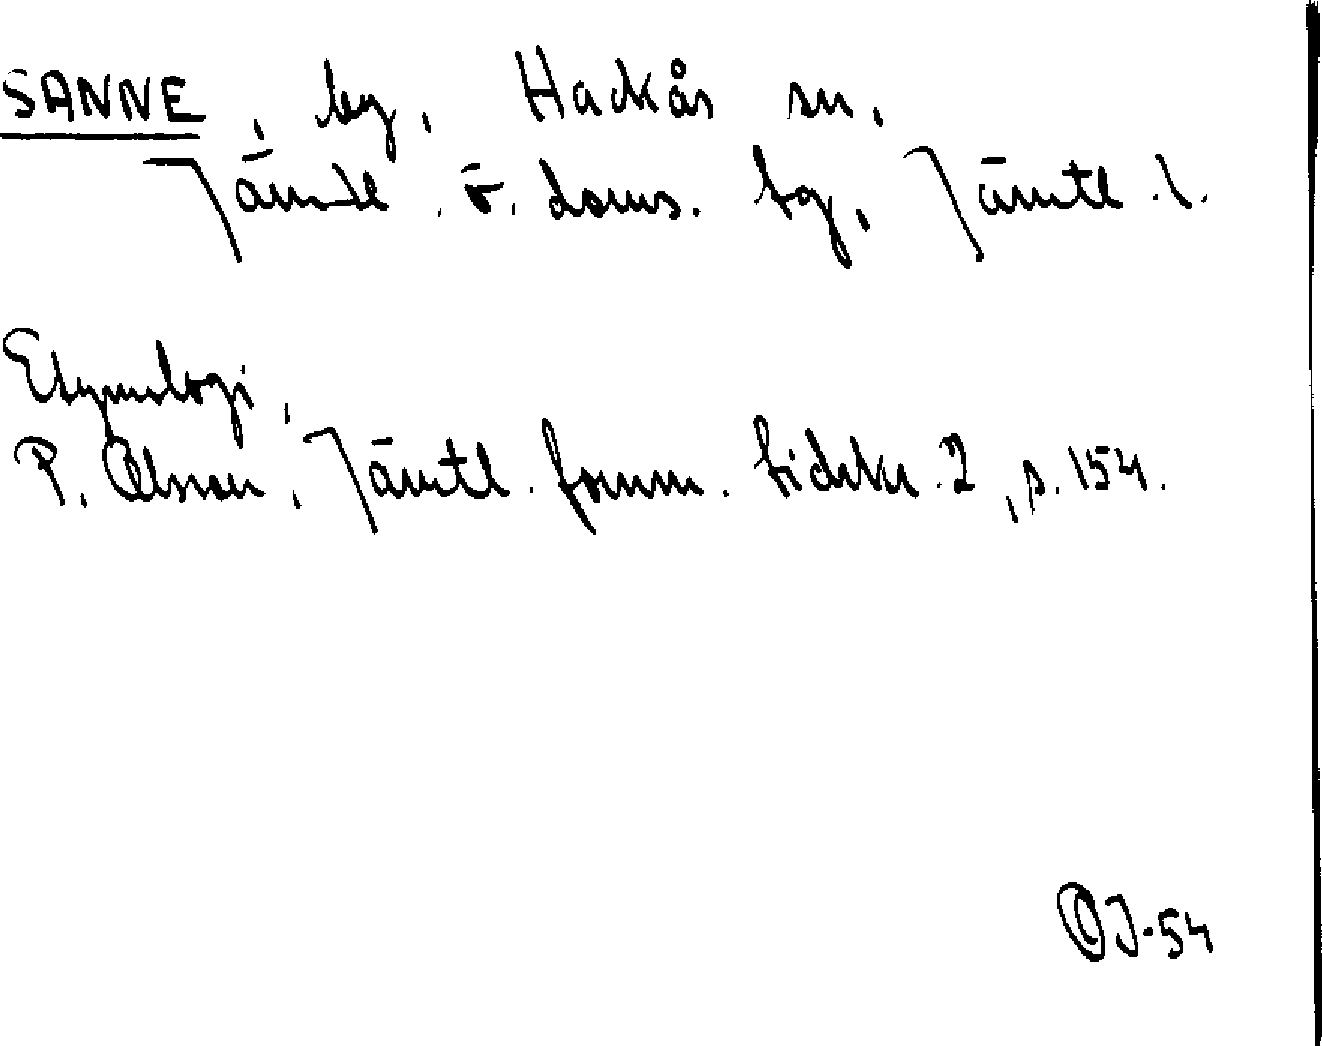 SANNE, by, Hackås sn,
Jämtl. ö. doms. tg, Jämtl. l.
Etymologi,
P. Olsson, Jämtl. fornm. tidskr. 2, s. 154.
OJ-54